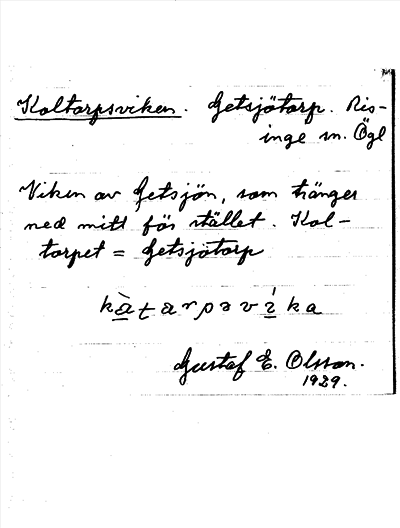 Koltorpsviken. Getsjötorp. Ris-
inge sn. Ögl
Viken av Getsjön, som tränger
ned mitt för stället. Kol-
torpet = Getsjötorp
Gustaf E. Olsson.
1929.